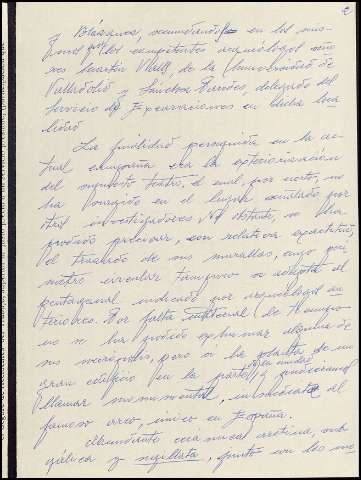 2
y Blázquez secundándole en los mis-
fines los competentes arqueólogos seño-
res Martín Valls, de la Universidad de
Valladolid y Sánchez Barriés, delegado del
Servicio de Excavaciones en dicha loca-
lidad
La finalidad perseguida en la ac-
tual campaña era la exteriorización
del supuesto teatro, el cual, por cierto, no
ha surgido en el lugar acotado por
otros investigadores. No obstante, se ha
podido precisar, con relativa exactitud,
el trazado de sus murallas, cuyo perí-
metro circular tampoco se adapta al
pentagonal indicado por arqueólogos an-
teriores. Por falta de tiempo
no se ha podido exhumar alguna de
sus necrópolis, pero sí la planta de un
gran edificio en la parte que pudiéramos
llamar monumental, inmediata al
famoso arco, único en España.
Abundante cerámica aretina, sub-
gálica y sigillata, junto con las mo-